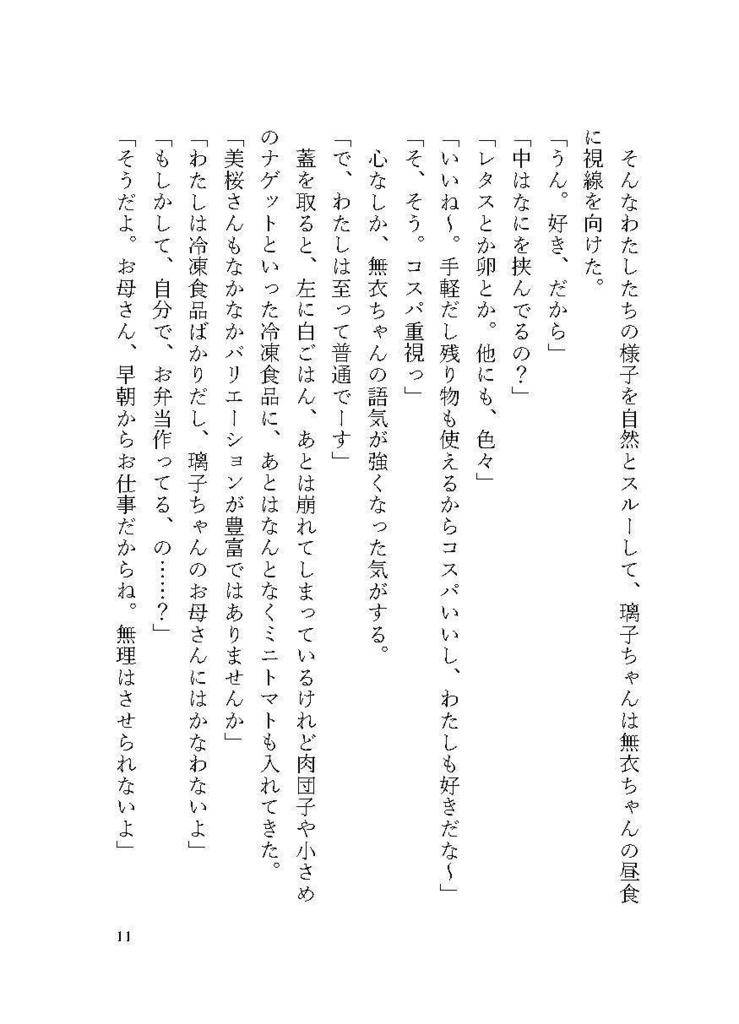 そんなわたしたちの様子を自然とスルーして、璃子ちゃんは無衣ちゃんの昼食
に視線を向けた。
「うん。好き、だから」
「中はなにを挟んでるの？」
「レタスとか卵とか。他にも、色々」
「いいね～。手軽だし残り物も使えるからコスパいいし、わたしも好きだな～」
「そ、そう。コスパ重視っ」
　心なしか、無衣ちゃんの語気が強くなった気がする。
「で、わたしは至って普通でーす」
　蓋を取ると、左に白ごはん、あとは崩れてしまっているけれど肉団子や小さめ
のナゲットといった冷凍食品に、あとはなんとなくミニトマトも入れてきた。
「美桜さんもなかなかバリエーションが豊富ではありませんか」
「わたしは冷凍食品ばかりだし、璃子ちゃんのお母さんにはかなわないよ」
「もしかして、自分で、お弁当作ってる、の……？」
「そうだよ。お母さん、早朝からお仕事だからね。無理はさせられないよ」
11